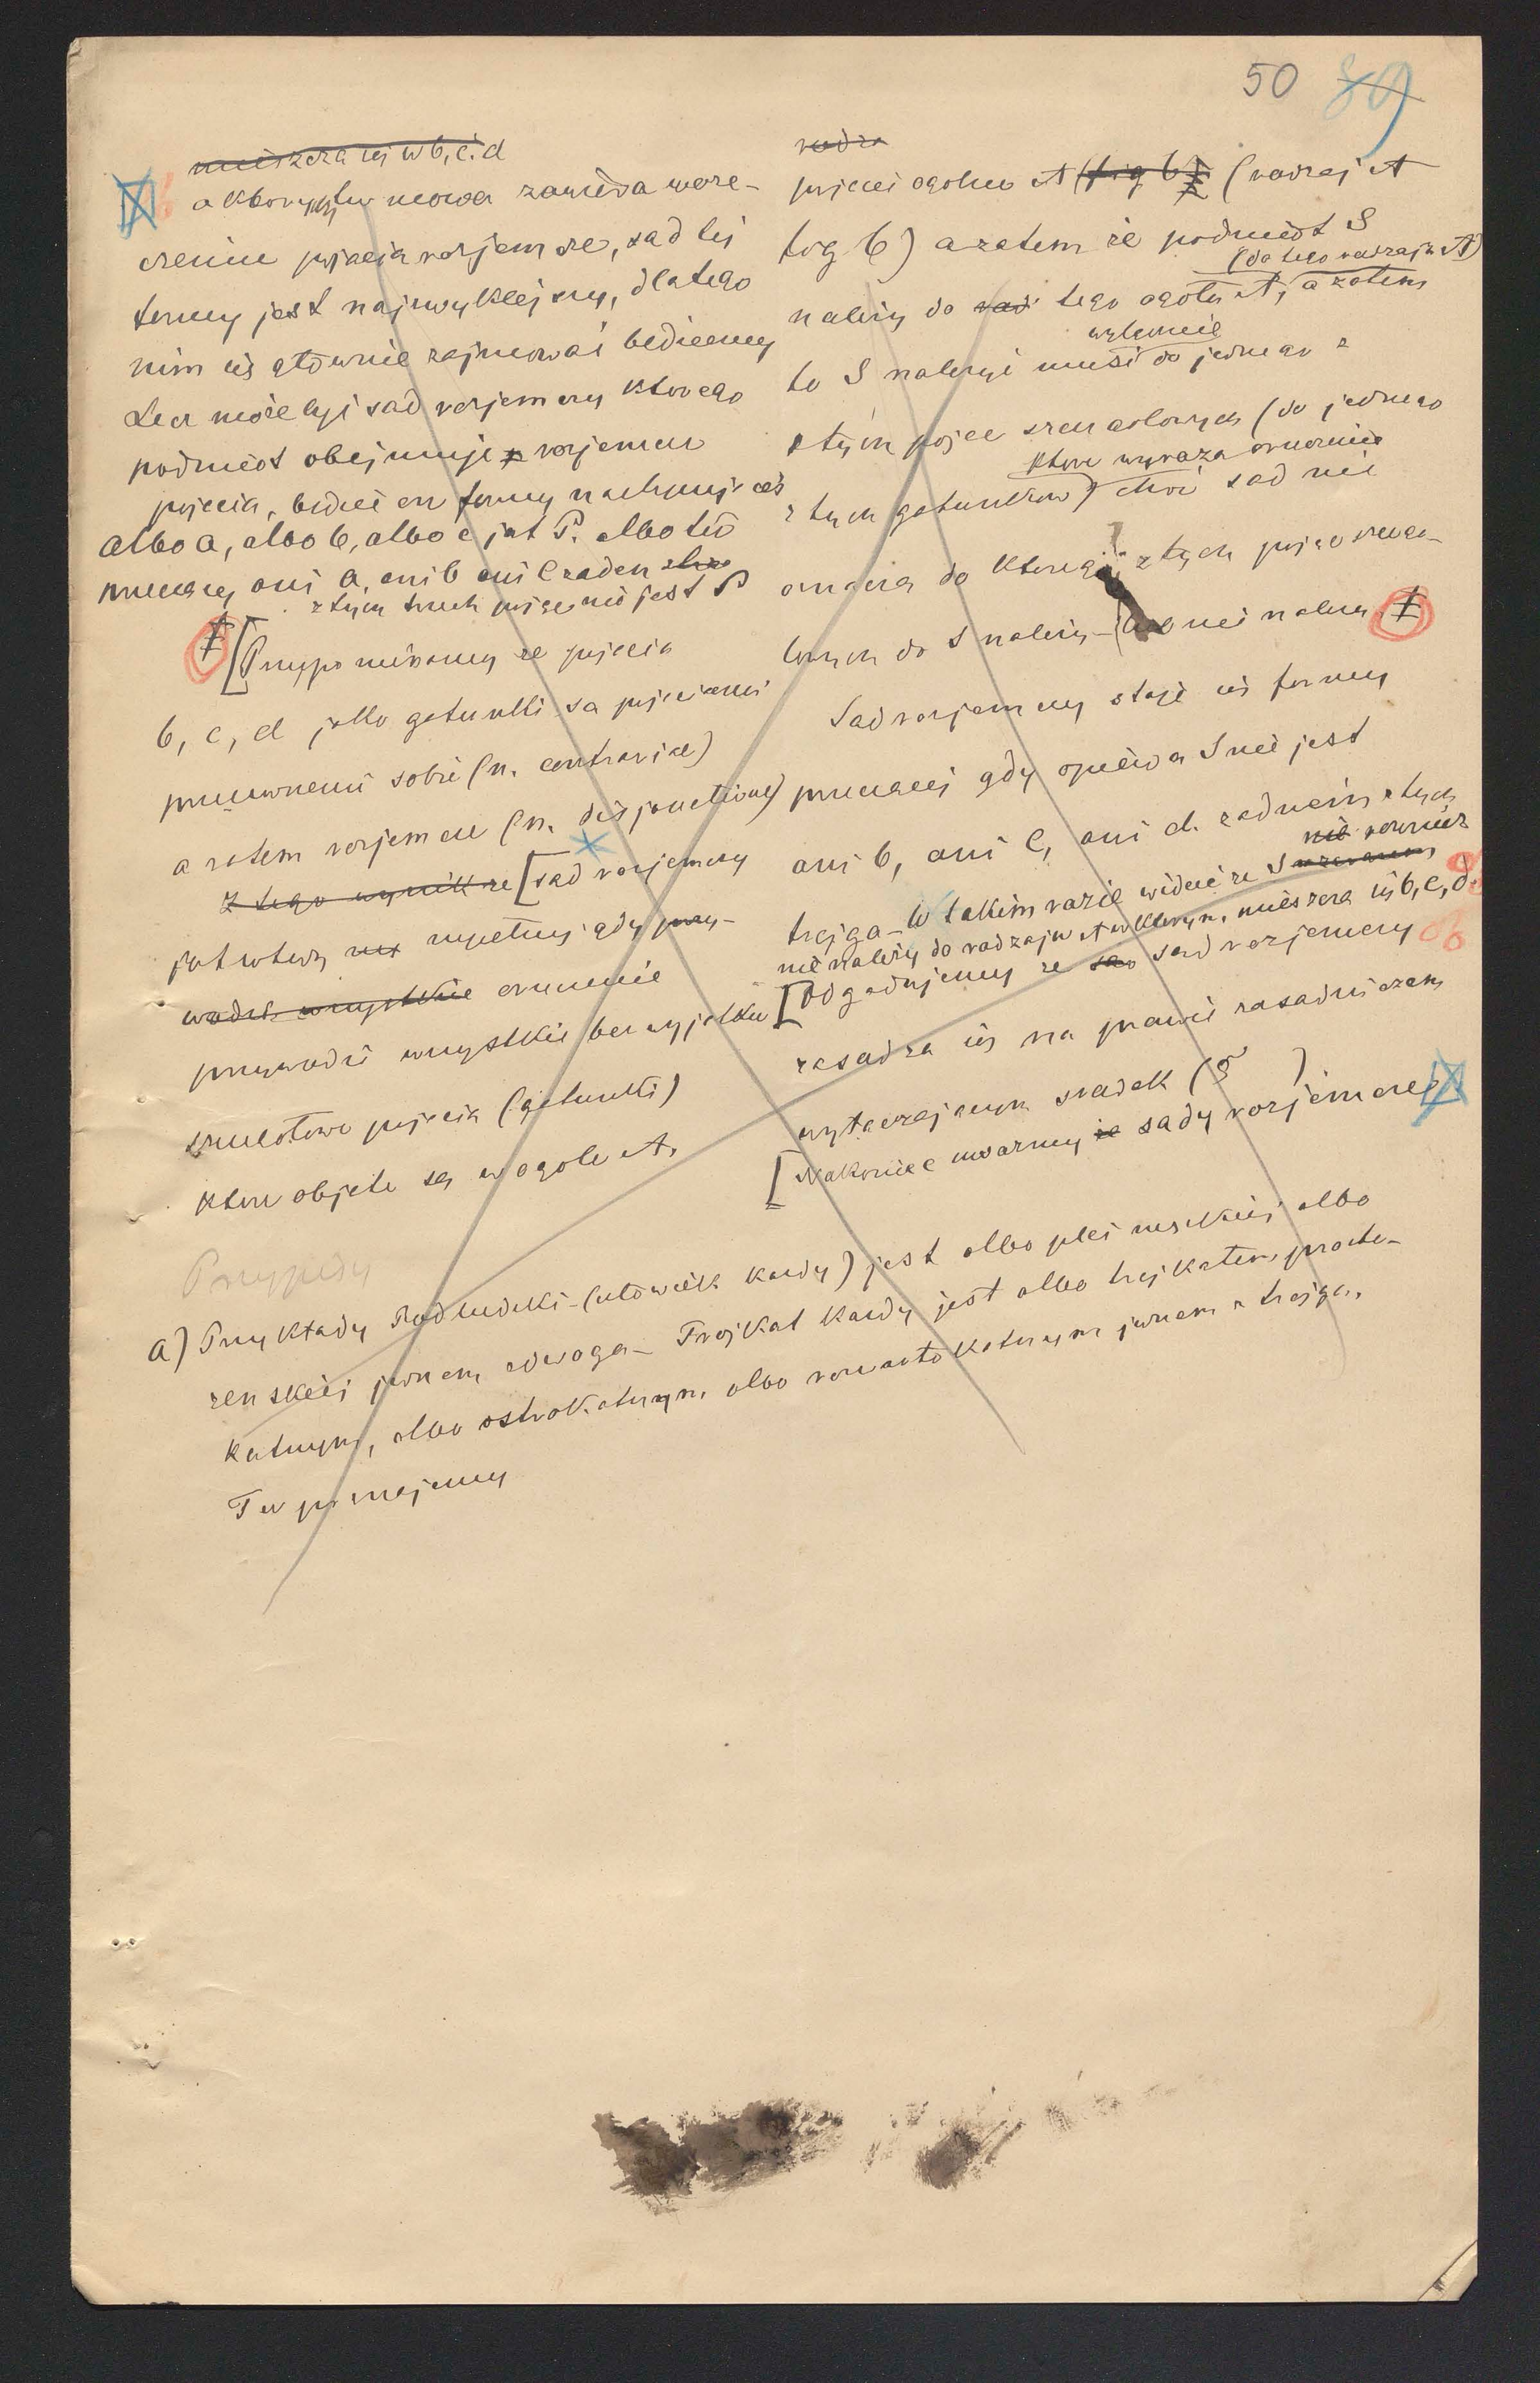 50 89
mieszcza się w b, c. d
o ktorych tu mowa zawiera w orze-
czeniu pojęcia rozjemcze, sąd tej
formy jest najzwyklejszy, dlatego
nim się głównie zajmować będziemy
Lecz może być sąd rozjemczy którego
podmiot obejmuje rozjemcze
pojęcia, będzie on formy następującej
albo a, albo b, albo c jest P. albo też
przeczący ani a, ani b ani c żaden
z tych trzech pojęć nie jest P
[Przypominamy że pojęcia
b, c, d jako gatunki są pojęciami
przeciwnemi sobie (n. contrariae)
a zatem rozjemcze (n. disjunctivae)
Z tego wynik że [sąd rozjemczy
jest wtedy zupełny gdy przy-
wodzi wszystkie orzeczenie
przywodzi wszystkie bez wyjątku
szczegółowe pojęcia (gatunki)
które objęte są w ogóle A.
Przypisy
rodza
pojęcie ogólne A (fig 6) (rodzaj A
fig 6) a zatem że podmiot S
(do tego rodzaju A)
należy do rod tego ogółu A, a zatem
wyłącznie
to S należyć musi do jednego z
z tych pojęć szczegółowych (do jednego
które wyraża orzeczenie
z tych gatunków) choć sąd nie
oznacza do którego z tych pojęć szczegó-
łowych do S należy nie należy
Sąd rozjemczy staje się formy
przeczącej gdy opiewa S nie jest
ani b, ani c, ani d. żadnem z tych
nie również
trojga - W takim razie widać że S
nie należy do rodzaju A w którym mieszczą się b, c, d.
[Odgadujemy że sąd rozjemczy
zasadza się na prawie zasadniczem
wyłączającym środek (§ )
[Nakoniec uważmy że sądy rozjemcze
a) Przykłady Rod ludzki - (człowiek każdy) jest albo płci męskiej albo
żeńskiej jednem z dwojga - Trojkąt każdy jest albo trojkątem prosto-
kątnym, albo ostrokątnym albo rozwartokątnym jednem z trojga.
Tu poznajemy